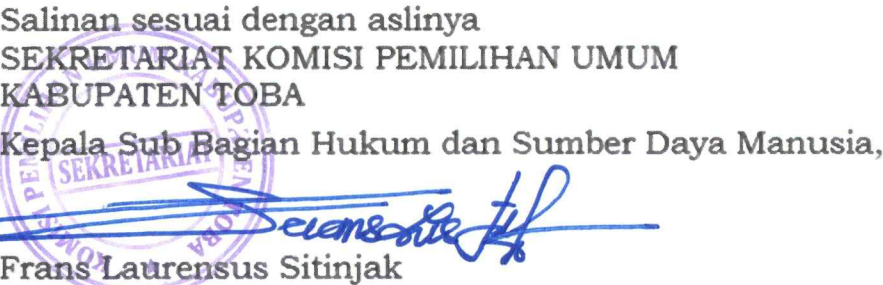 Salinan sesuai dengan aslinya
SEKRETARIAT KOMISI PEMILIHAN UMUM
KABUPATEN TOBA
Kepala Sub Bagian Hukum dan Sumber Daya Manusia,
SEKRETARIAT
KOMISI PEMILIHAN UMUM KABUPATEN TOBA
Frans Laurensus Sitinjak